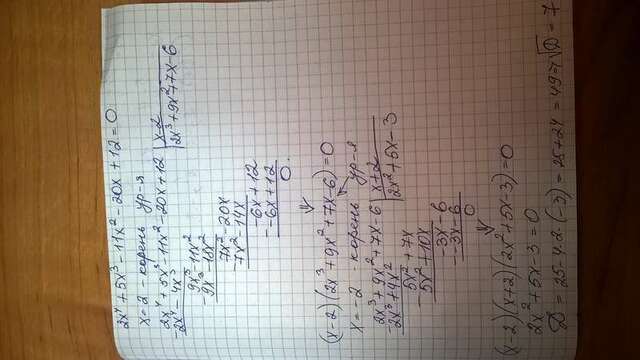 2x⁴ + 5x³ - 11x² - 20x + 12 = 0
x = 2 - корень ур-я
2x⁴ + 5x³ - 11x² - 20x + 12 | x - 2
2x⁴ - 4x³ | 2x³ + 9x² + 7x - 6
9x³ - 11x²
9x³ - 18x²
7x² - 20x
7x² - 14x
-6x + 12
-6x + 12
0.
⇓
(x-2)(2x³ + 9x² + 7x - 6) = 0
x = -2 - корень ур-я
2x³ + 9x² + 7x - 6 | x + 2
2x³ + 4x² | 2x² + 5x - 3
5x² + 7x
5x² + 10x
-3x - 6
-3x - 6
0
⇓
(x-2)(x+2)(2x² + 5x - 3) = 0
2x² + 5x - 3 = 0
D = 25 - 4·2·(-3) = 25 + 24 = 49 ⇒ √D = 7